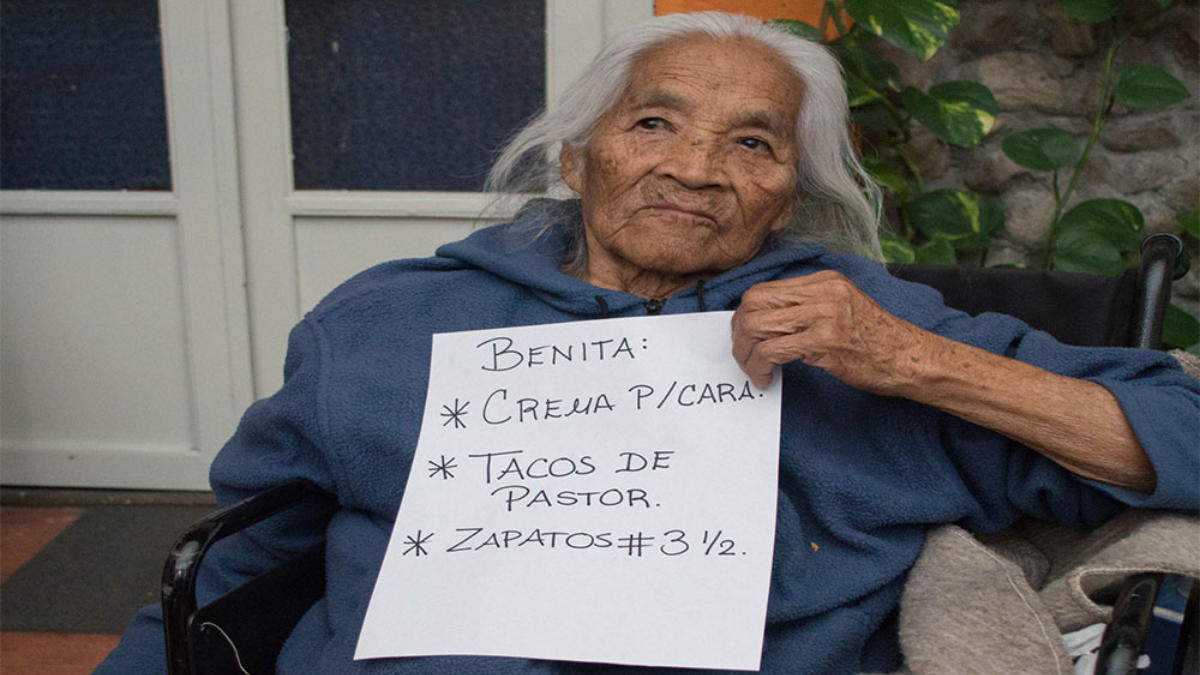 BENITA:
* CREMA P/CARA.
* TACOS DE
PASTOR.
* ZAPATOS # 3 1/2.